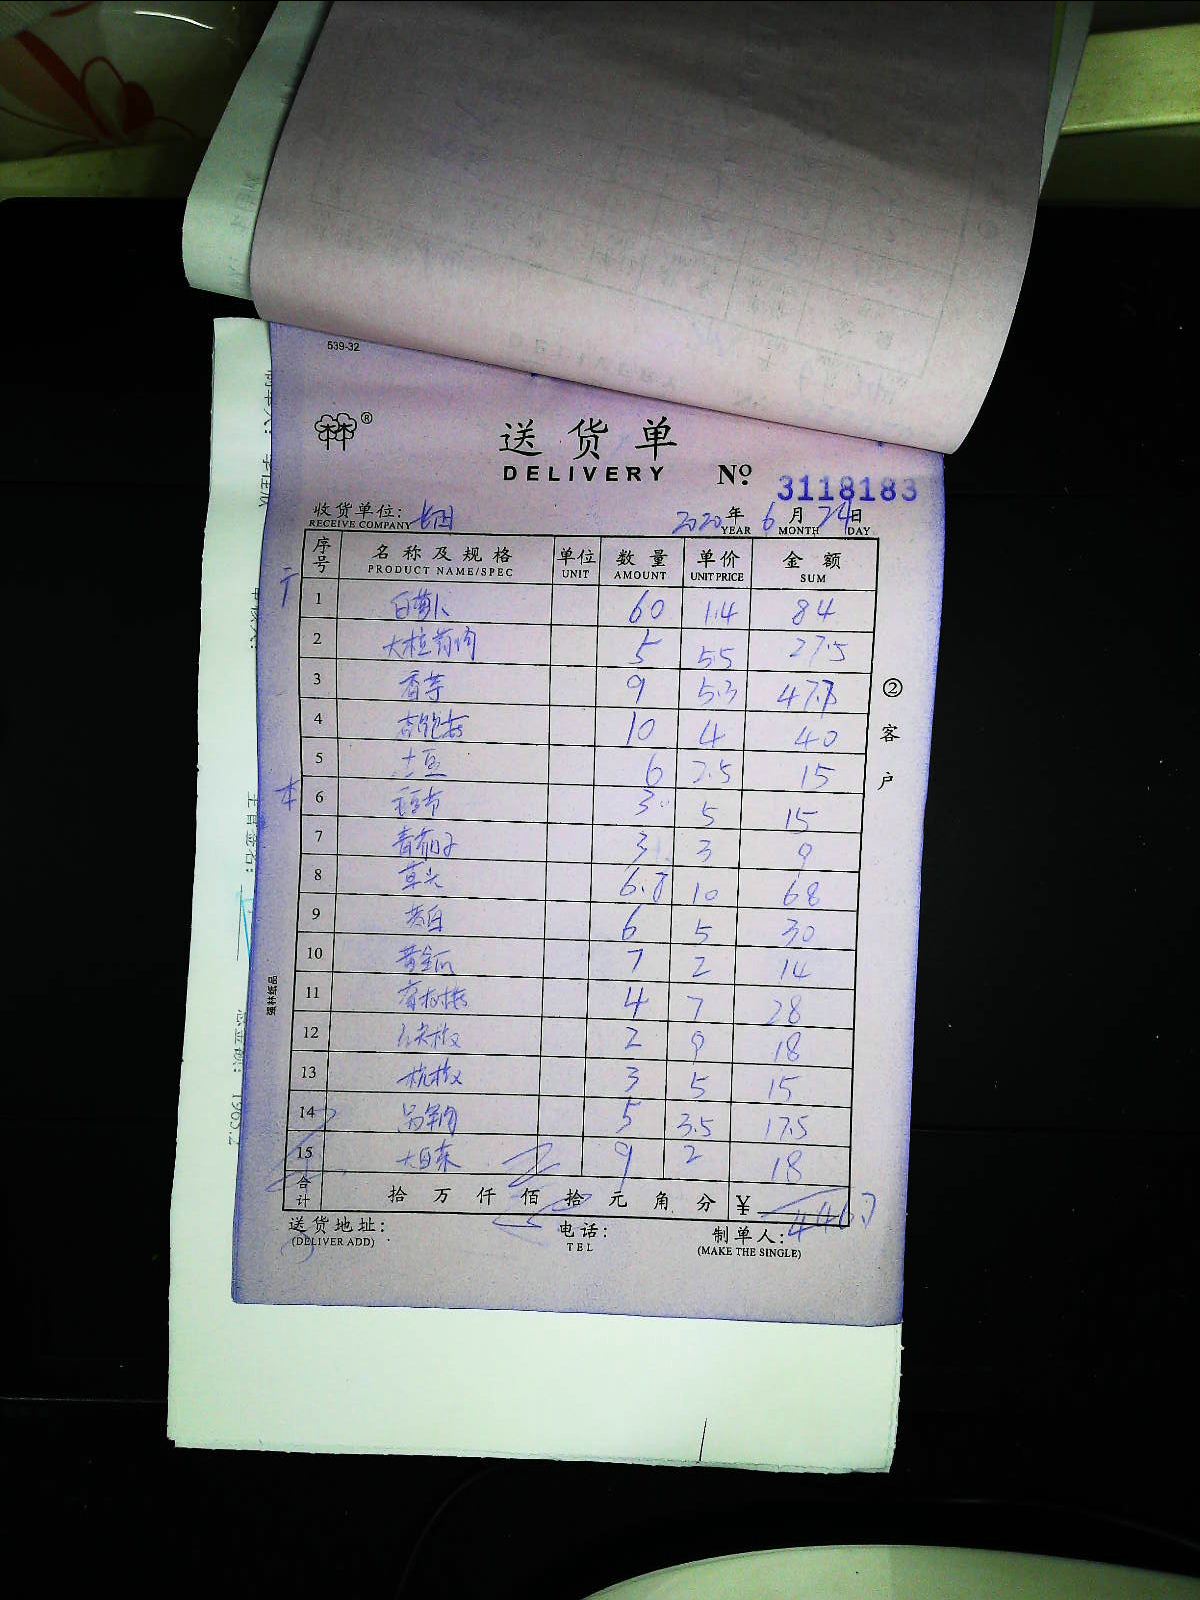 539-32
林®
送货单
DELIVERY № 3118183
收货单位: 2020年6月24日
RECEIVE COMPANY YEAR MONTH DAY
序号 名称及规格 单位 数量 单价 金额
PRODUCT NAME/SPEC UNIT AMOUNT UNIT PRICE SUM
1 白萝卜 60 1.4 84
2 5 5.5 27.5
3 香芋 9 5.3 47.7
4 杏鲍菇 10 4 40
5 土豆 6 2.5 15
6 3 5 15
7 青茄子 3 3 9
8 草头 6.8 10 68
9 茭白 6 5 30
10 黄金瓜 7 2 14
11 4 7 28
12 2 9 18
13 杭椒 3 5 15
14 5 3.5 17.5
15 大白菜 9 2 18
合计 拾万仟佰拾元角分 ¥ 446.7
送货地址: 电话: 制单人:
(DELIVER ADD) TEL (MAKE THE SINGLE)
②客户
强林纸品
1965.2